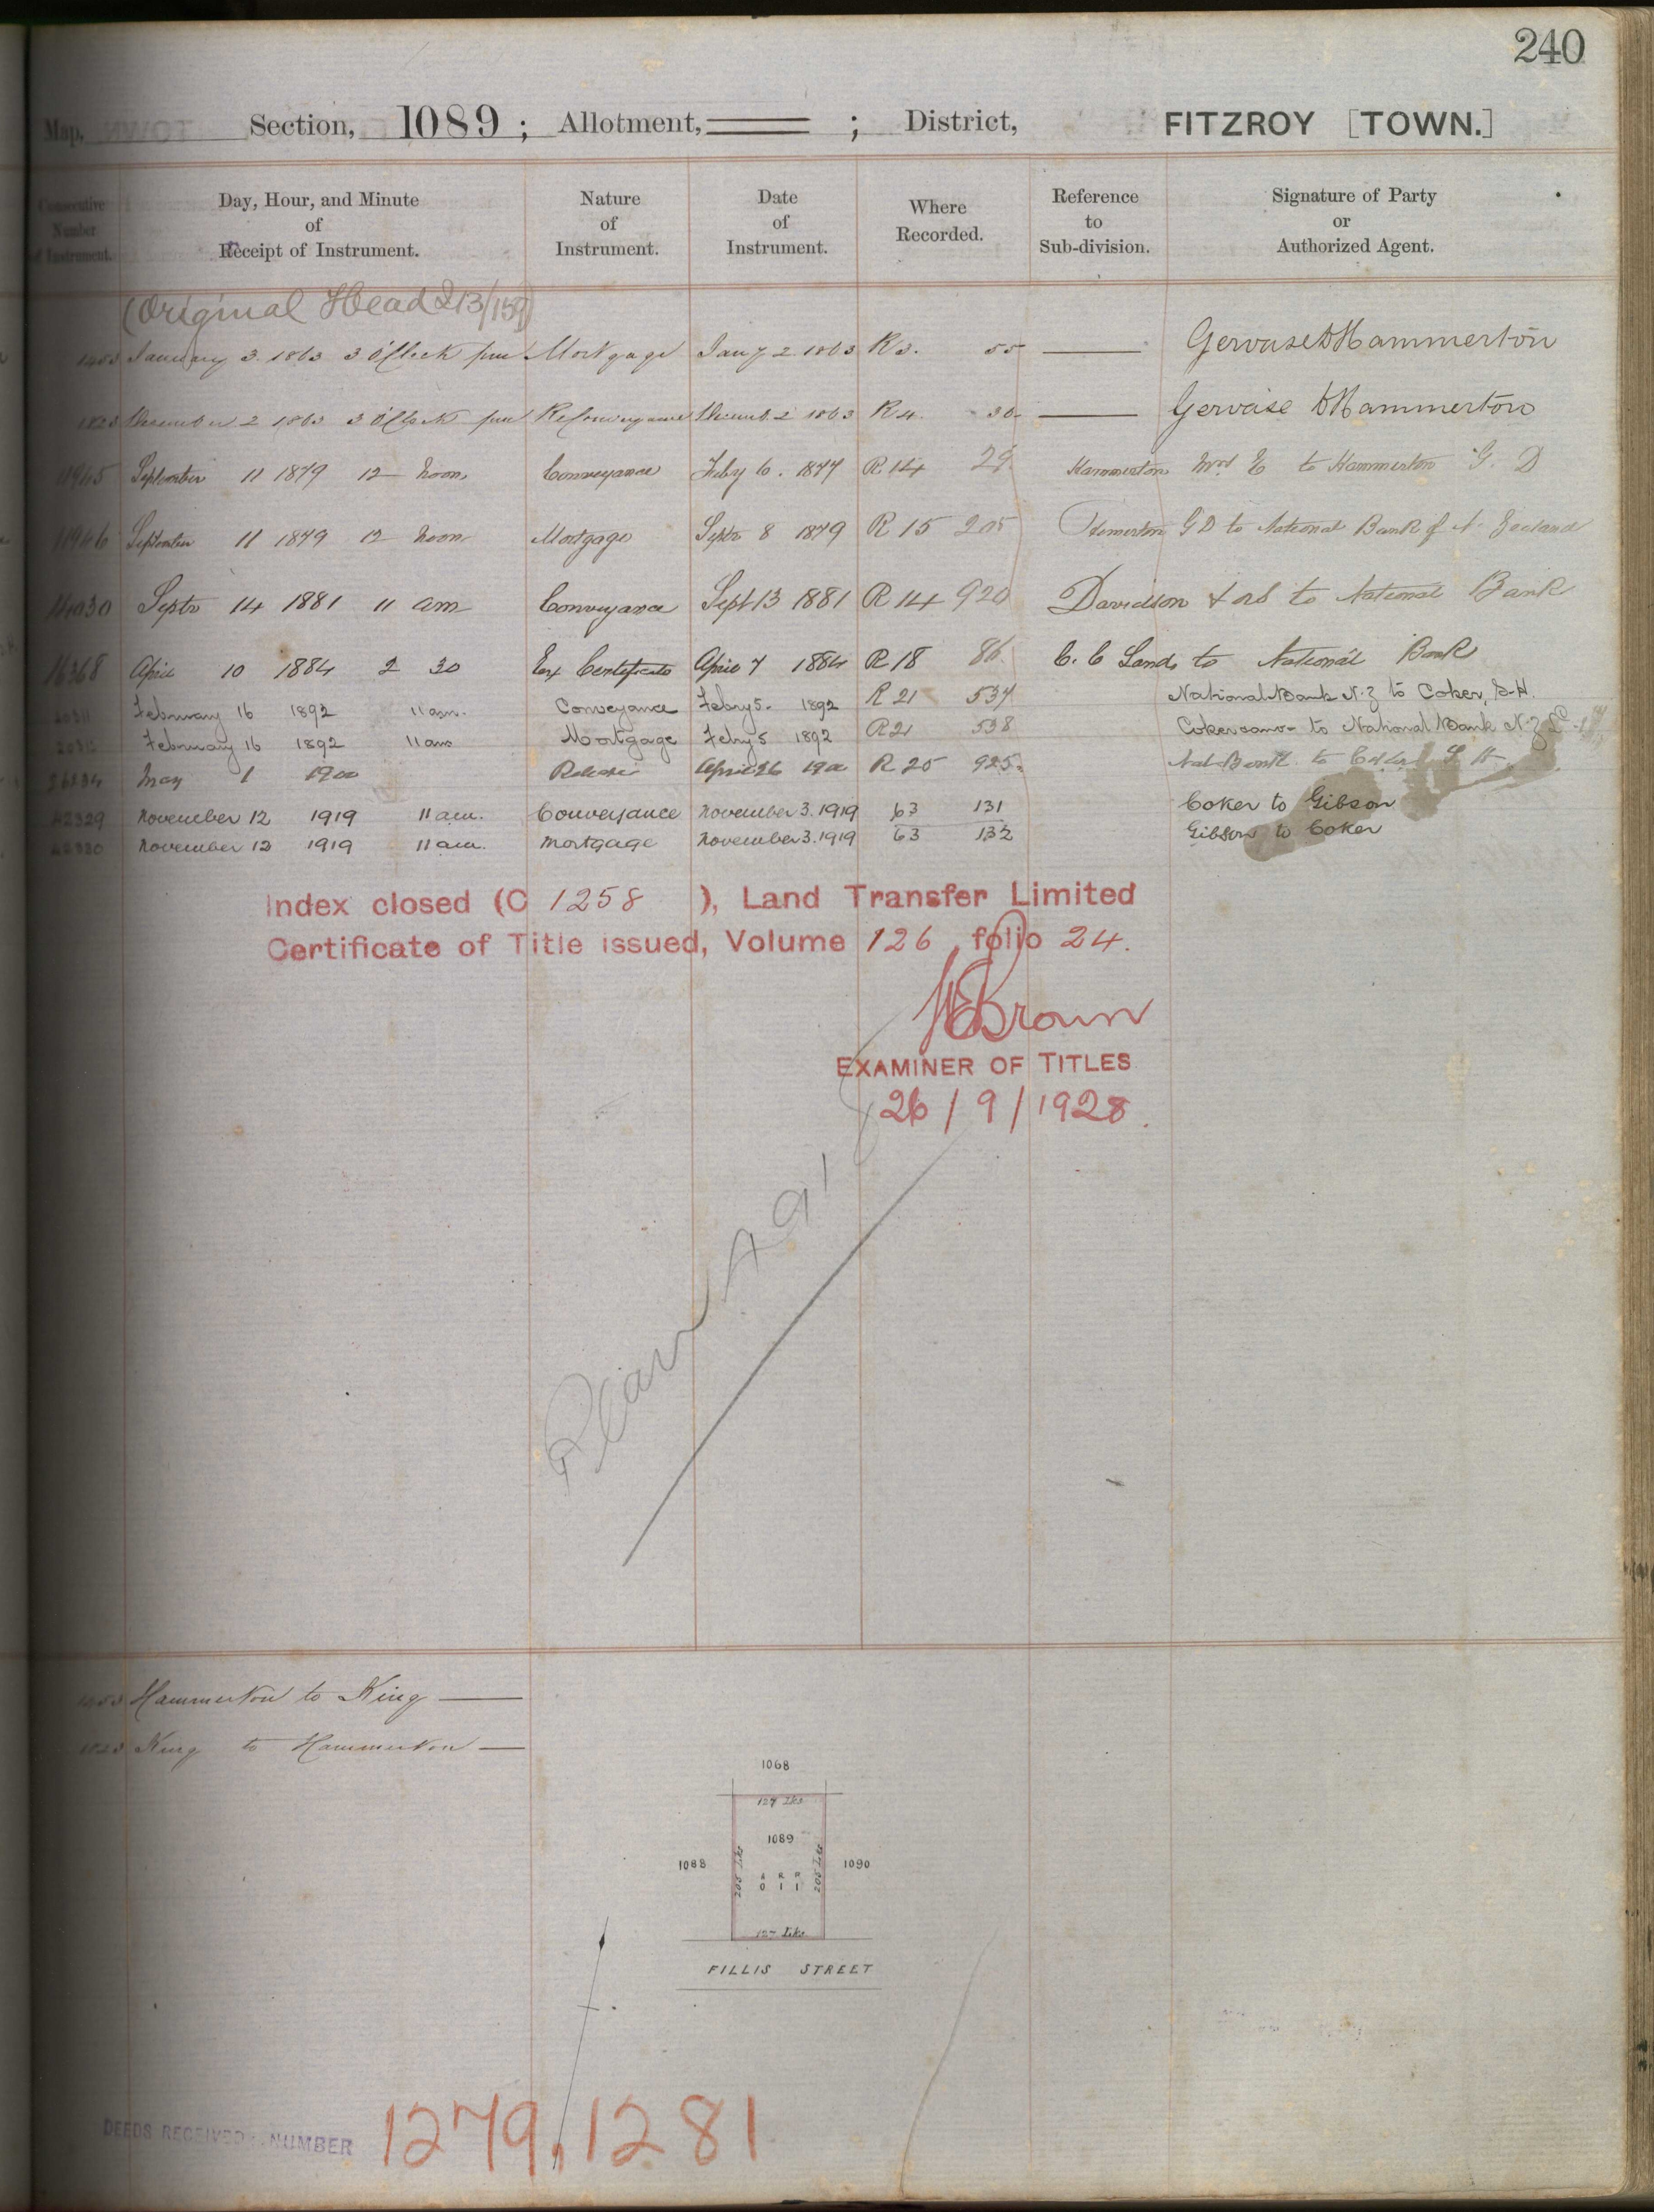 240
Map, Section, 1089 ; Allotment, ; District, FITZROY [TOWN.]
Consecutive Number of Instrument.
Day, Hour, and Minute of Receipt of Instrument.
Nature of Instrument.
Date of Instrument.
Where Recorded.
Reference to Sub-division.
Signature of Party or Authorized Agent.
(Original Head
January 3. 1863 3 O'Clock pm Mortgage Jany 2 1863 R 3. 55 Gervase D Hammerton
December 2 1863 3 O'Clock pm Reconveyance Decemb. 2 1863 R 4. 30 Gervaise D Hammerton
11945 September 11 1879 12 noon Conveyance Feby 6. 1877 R 14 29 Hammerton Mrs E to Hammerton G. D
11946 September 11 1879 12 noon Mortgage Septr 8 1879 R 15 205 G D to National Bank of N. Zealand
14030 Septr 14 1881 11 am Conveyance Sept 13 1881 R 14 920 Davidson & ors to National Bank
16368 April 10 1884 2 30 Certificate April 7 1884 R 18 86. C. C Lands to National Bank
February 16 1892 11 am. Conveyance Febry 5. 1892 R 21 537 National Bank N.Z to Coker, S. H.
February 16 1892 11 am Mortgage Feby 5 1892 R 21 538 Coker to National Bank N.Z
May 1 1900 Release April 26 1900 R 25 925. Nat Bank to Coker S H
42329 November 12 1919 11 am. Conveyance November 3. 1919 63 131 Coker to Gibson
42330 November 12 1919 11 am. Mortgage November 3. 1919 63 132 Gibson to Coker
Index closed (C 1258 ), Land Transfer Limited
Certificate of Title issued, Volume 126, folio 24.
Brown
EXAMINER OF TITLES
26/9/1928.
Hammerton to King
King to Hammerton
1068
127 Lks
1089
1088
205 Lks
A R P
0 1 1
205 Lks
1090
127 Lks
FILLIS STREET
DEEDS RECEIVED NUMBER 1279, 1281